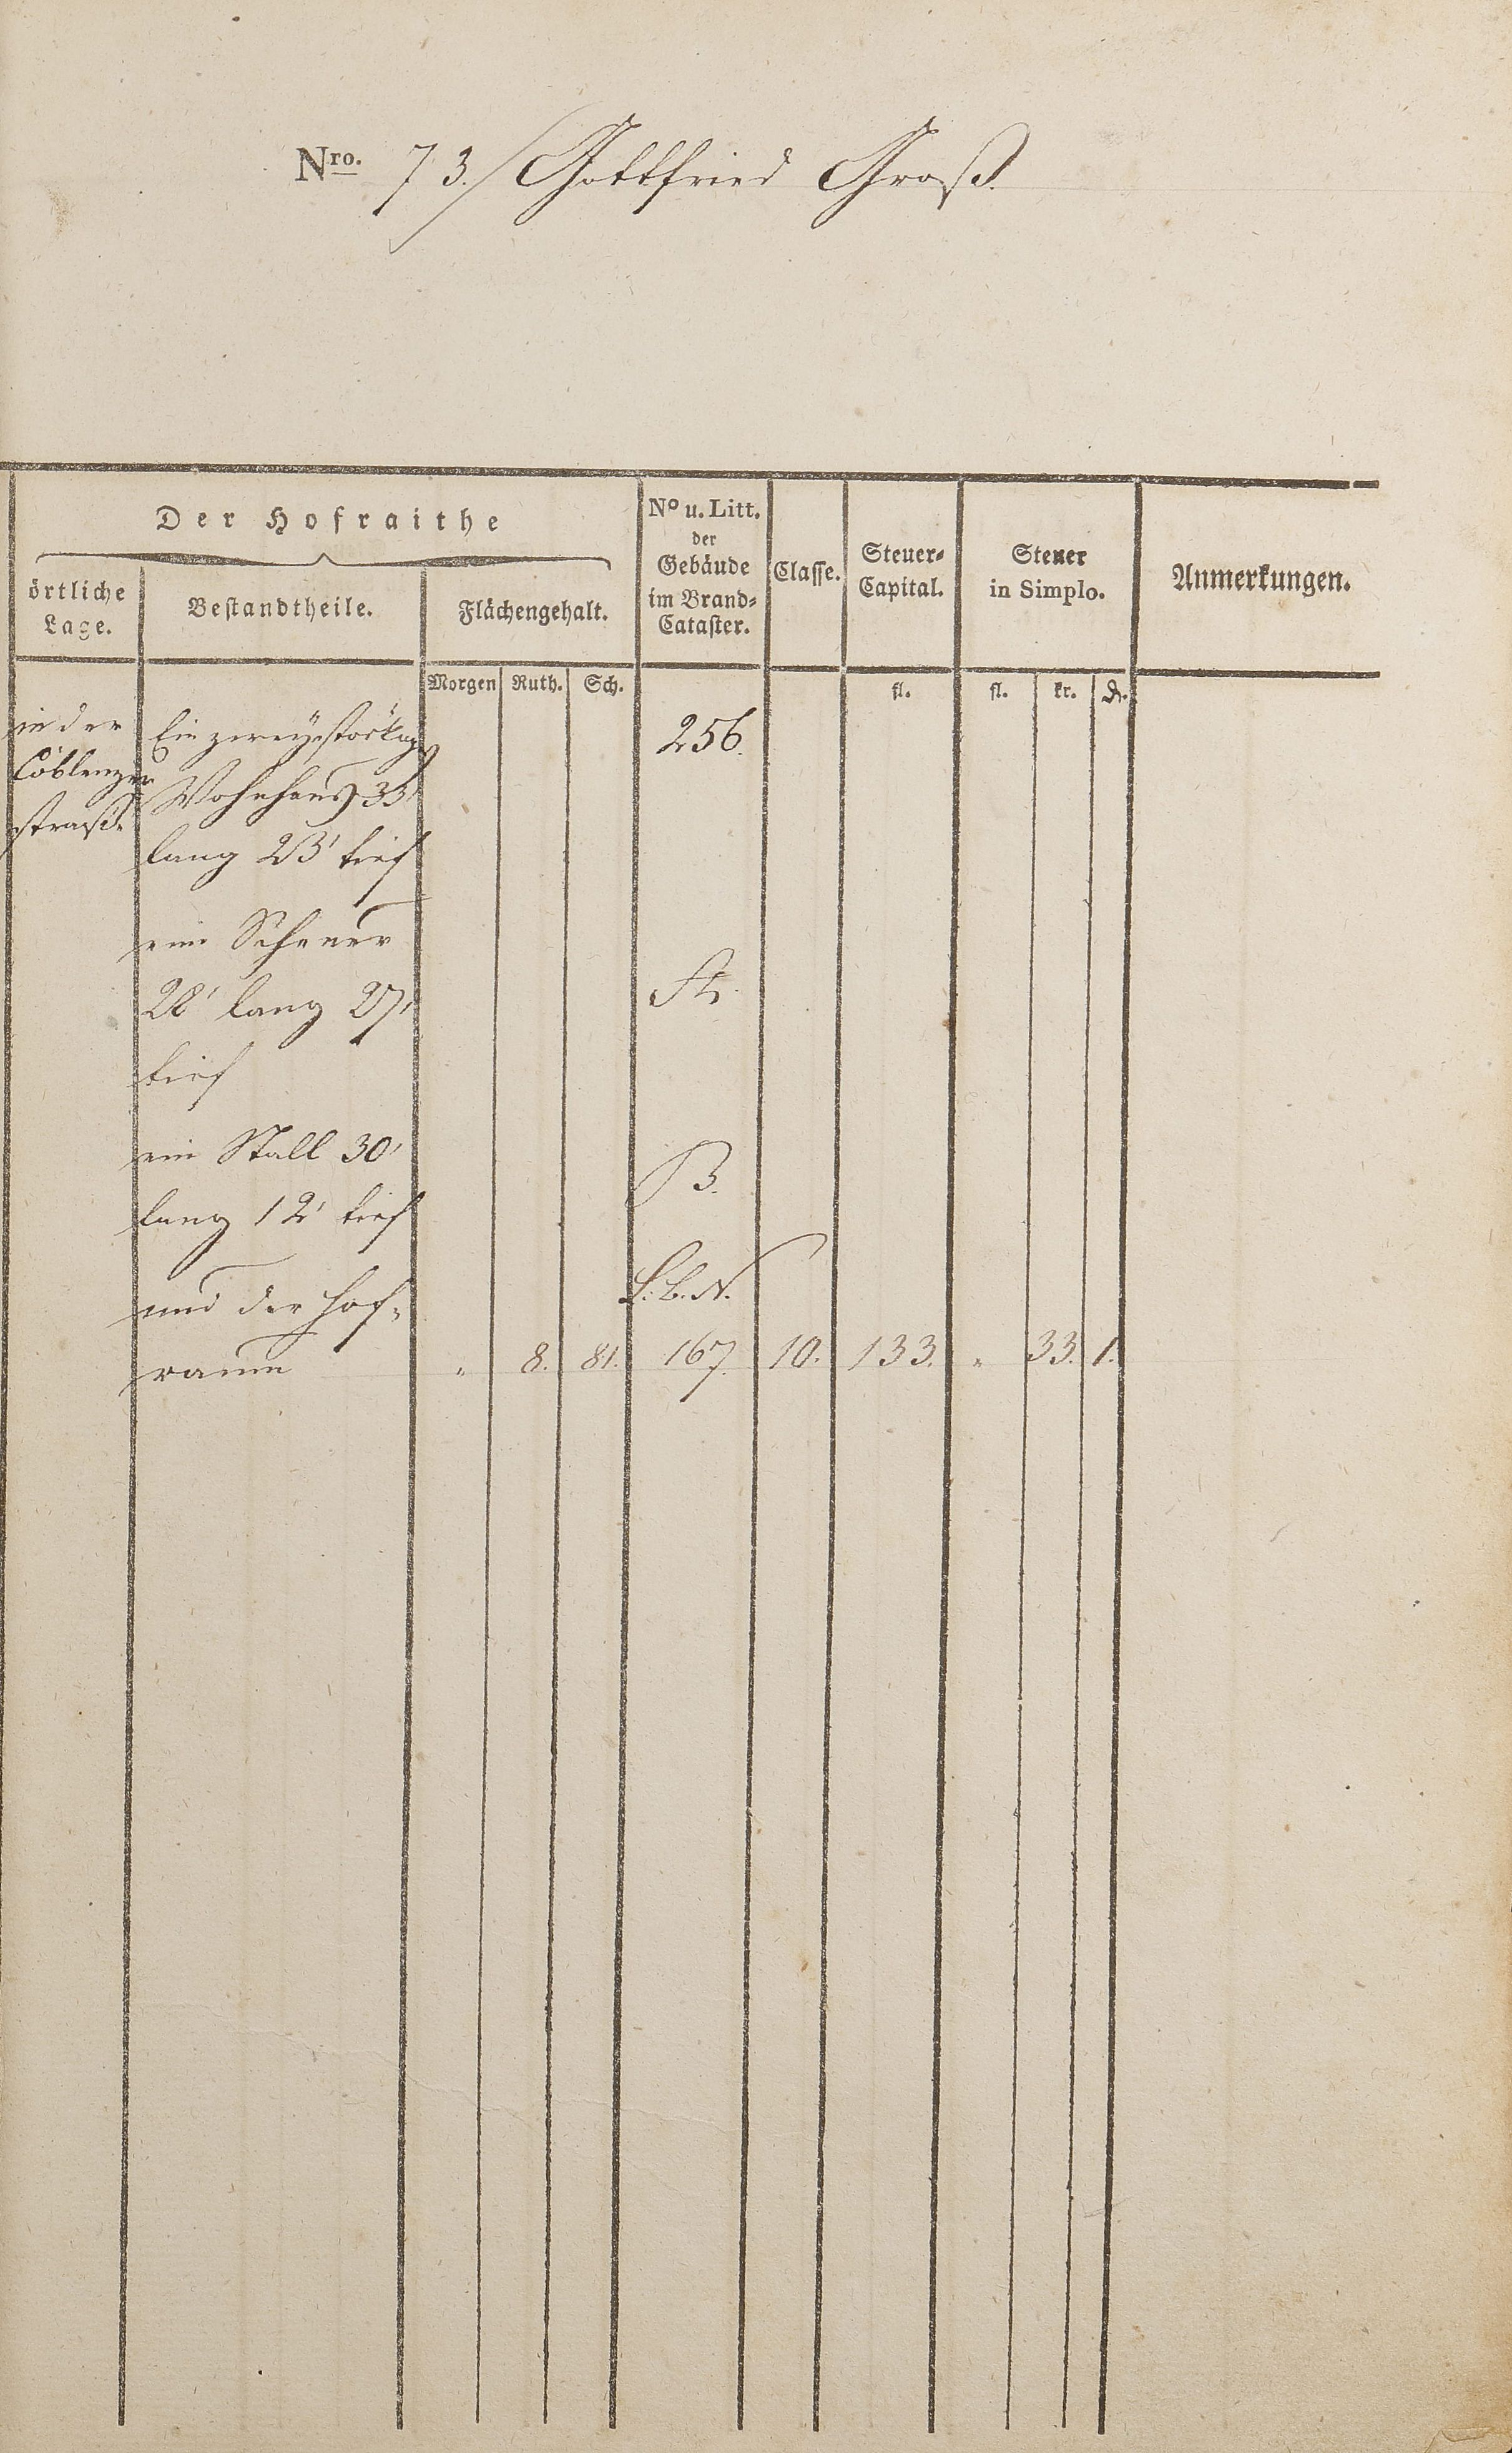 Nro. 73./ Gottfried Groß.
Der Hofraithe
örtliche
Lage.
Bestandtheile.
Flächengehalt.
No u. Litt.
der
Gebäude
im Brand-
Cataster.
Classe.
Steuer-
Capital.
Steuer
in Simplo.
Anmerkungen.
Morgen Ruth. Sch. fl. fl. kr. d.
in der Ein zweystöckig 256.
Coblenzer Wohnhaus 33'
straße lang 23' tief
eine Scheuer
28' lang 27' A.
tief
ein Stall 30' B.
lang 12' tief
und der Hof- L. b. N.
raum " 8. 81. 167. 10. 133. " 33. 1.